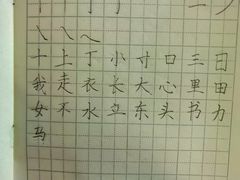 十 上 丁 小 寸 口 三 日
我 走 衣 长 大 心 里 田
女 不 水 立 东 头 书 力
马